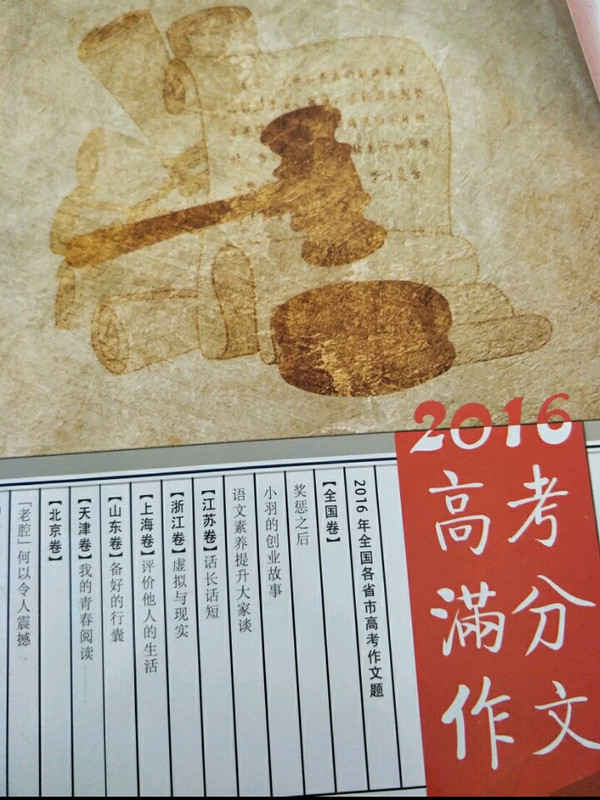 2016
高考
满分
作文
2016年全国各省市高考作文题
【全国卷】
奖惩之后
小羽的创业故事
语文素养提升大家谈
【江苏卷】话长话短
【浙江卷】虚拟与现实
【上海卷】评价他人的生活
【山东卷】备好的行囊
【天津卷】我的青春阅读
【北京卷】
「老腔」何以令人震撼